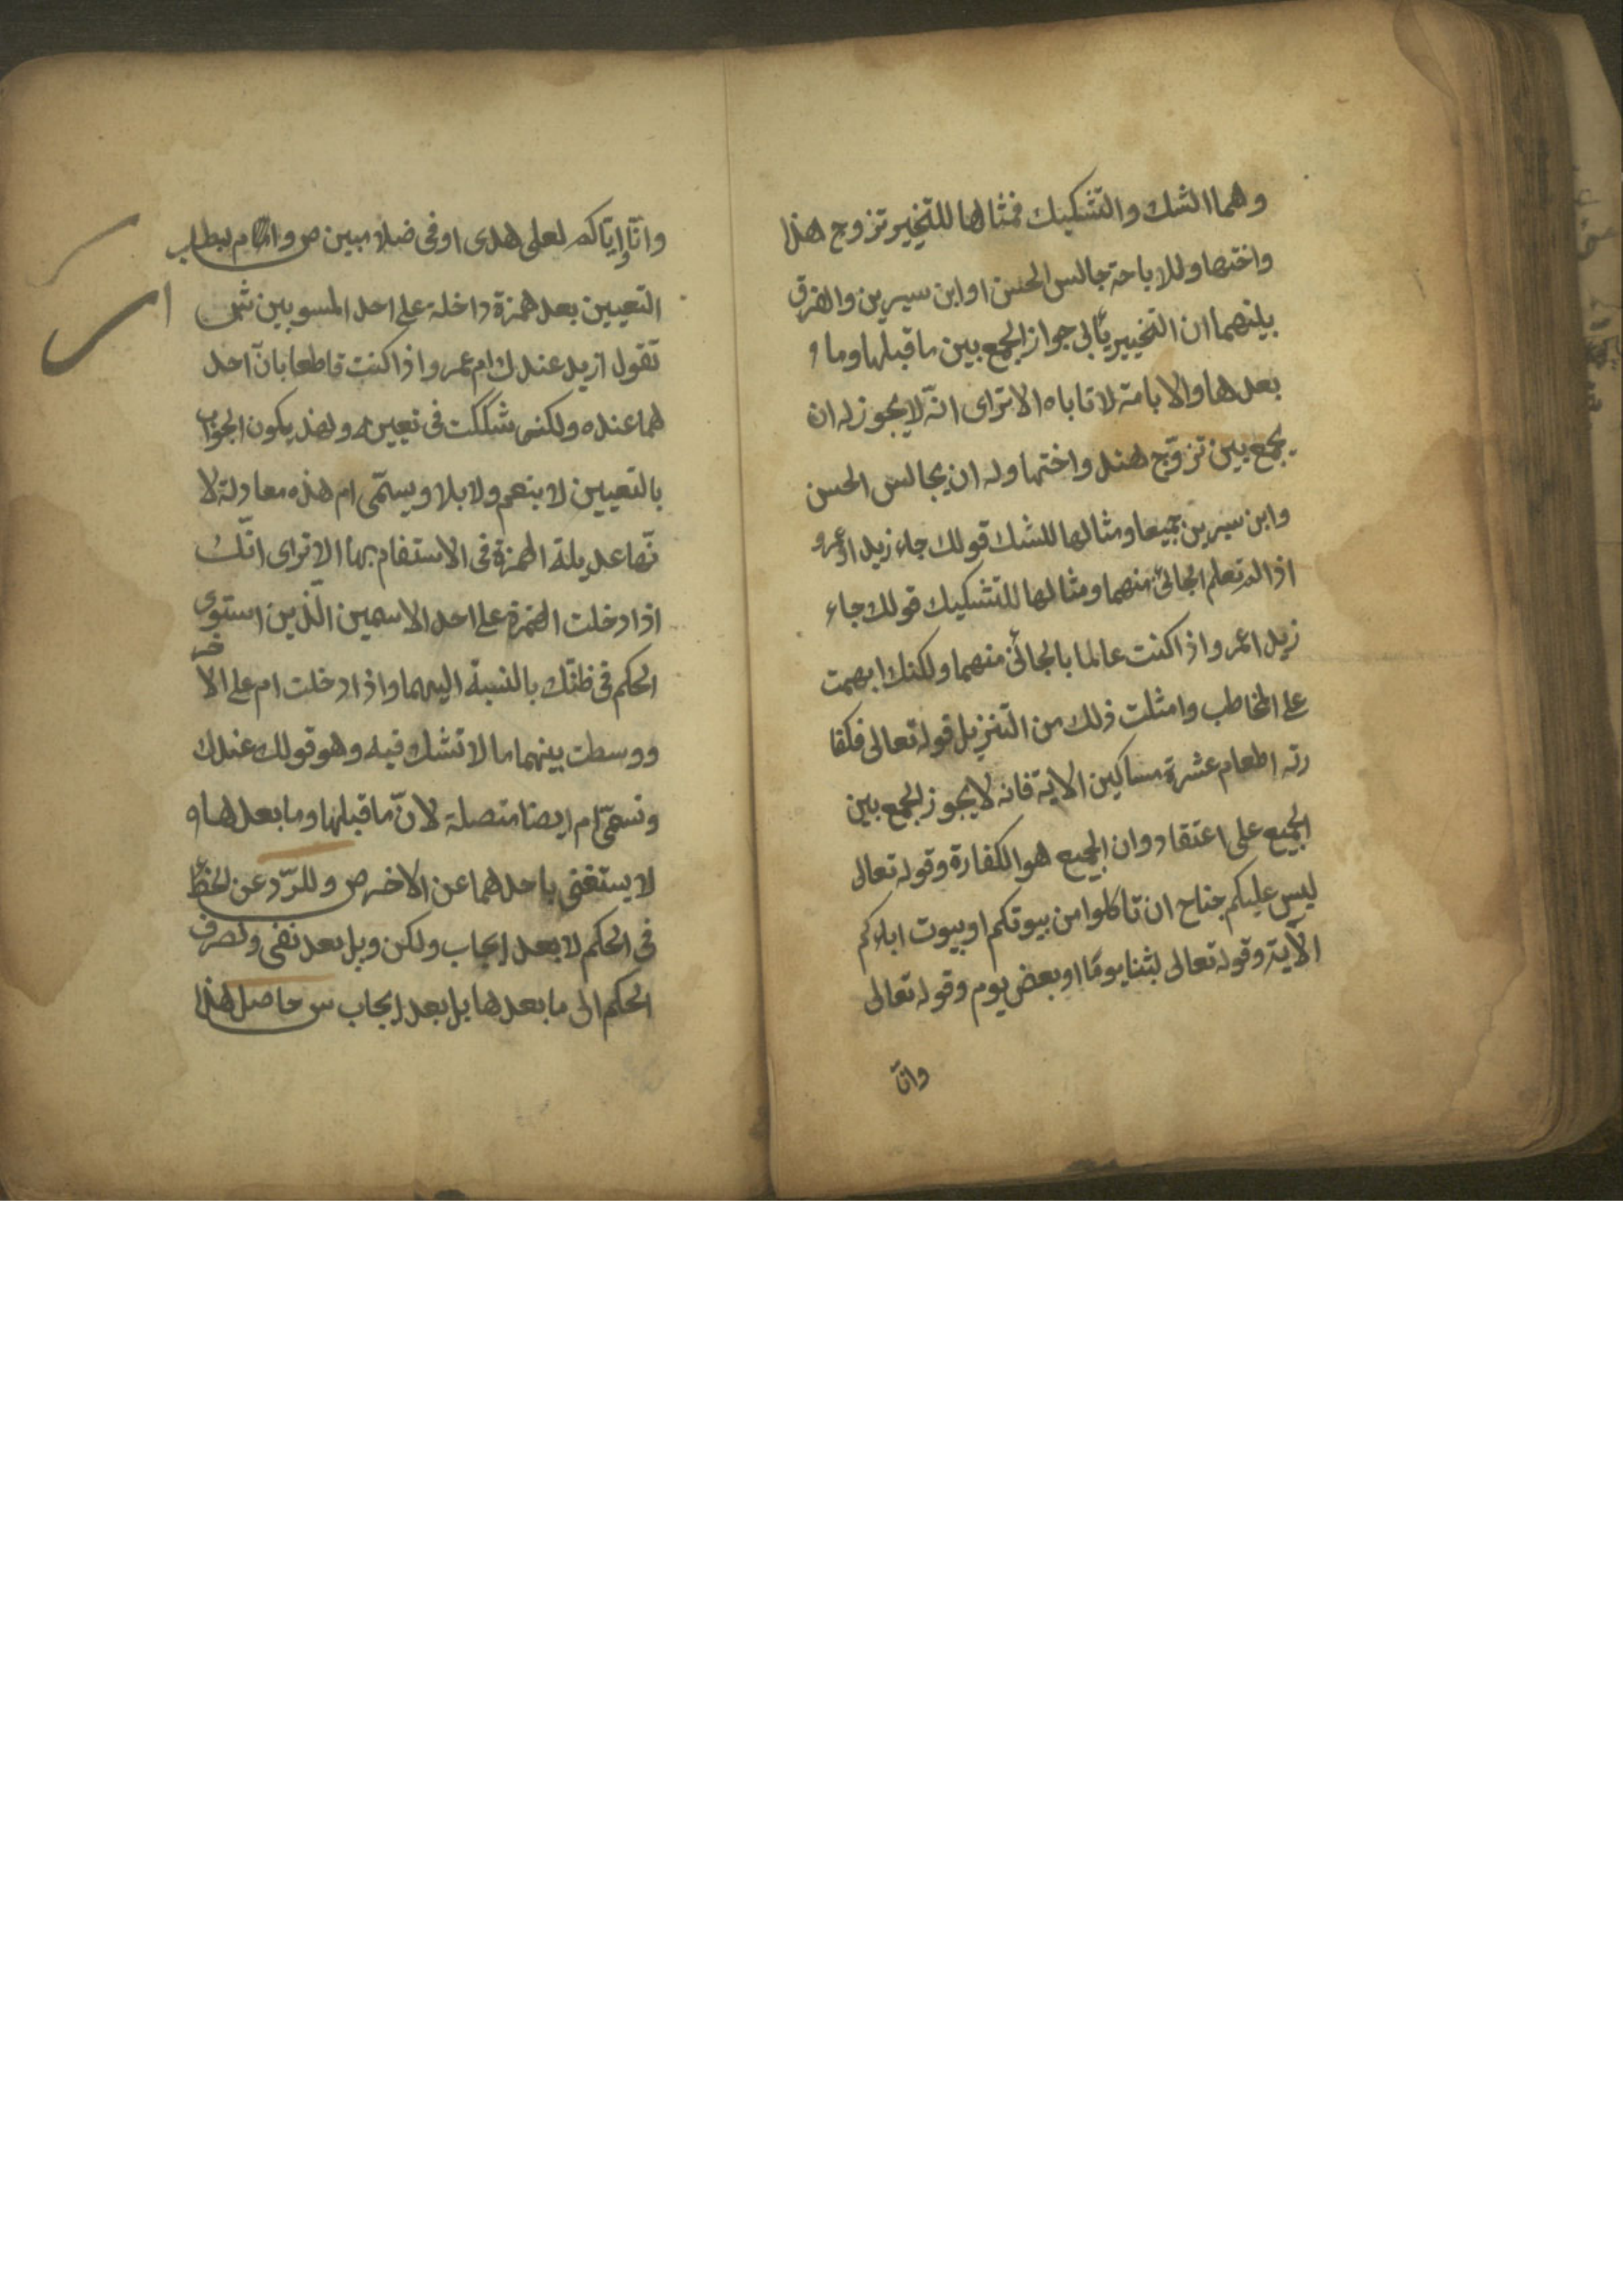 وهما الشك والتشكيك فمثالها للتخيير تزوج هندا
واختها وللاباحة جالس الحسن او ابن سيرين والفرق
بينهما ان التخيير يأبى جواز الجمع بين ما قبلها وما و
بعدها والاباحة لا تاباه الا ترى انّه لا يجوز له ان
يجمع بين تزوّج هند واختها وله ان يجالس الحسن
وابن سيرين جميعا ومثالها للشك قولك جاء زيد او عمرو
اذا لم تعلم الجائى منهما ومثالها للتشكيك قولك جاء
زيد او عمرو اذا كنت عالما بالجائى منهما ولكنك ابهمت
على المخاطب وامثلت ذلك من التنزيل قوله تعالى فكفا
رته اطعام عشرة مساكين الاية فانه لا يجوز الجمع بين
الجميع على اعتقاد وان الجميع هو الكفارة وقوله تعالى
ليس عليكم جناح ان تاكلوا من بيوتكم او بيوت اباءكم
الآية وقوله تعالى لبثنا يومًا او بعض يوم وقوله تعالى
وانّا
وانّا وإيّاكم لعلى هدى او فى ضلا مبين ص وام لطلب
التعيين بعد همزة داخلة على احد المسويين ش
تقول ازيد عندك ام عمرو اذا كنت قاطعا بانّ احد
هما عنده ولكنى شككت فى تعيينه ولهذ يكون الجواب
بالتعيين لا بنعم ولا بلا ويسمّى ام هذه معادلة لا
نّها عديلة الهمزة فى الاستفام بها الا ترى انّك
اذا دخلت الهمزة على احد الاسمين الّذين استوى
الحكم فى ظنّك بالنسبة اليهما واذا دخلت ام على الا
خر
ووسطت بينهما ما لا تشك فيه وهو قولك عندك
وتسمّى ام ايضا متصلة لانّ ما قبلها وما بعدها و
لا يستغنى باحدهما عن الاخر ص وللرّد عن الخطّ
فى الحكم لا بعد ايجاب ولكن وبل بعد نفى ولصرف
الحكم الى ما بعدها بل بعد ايجاب ش حاصل هذا